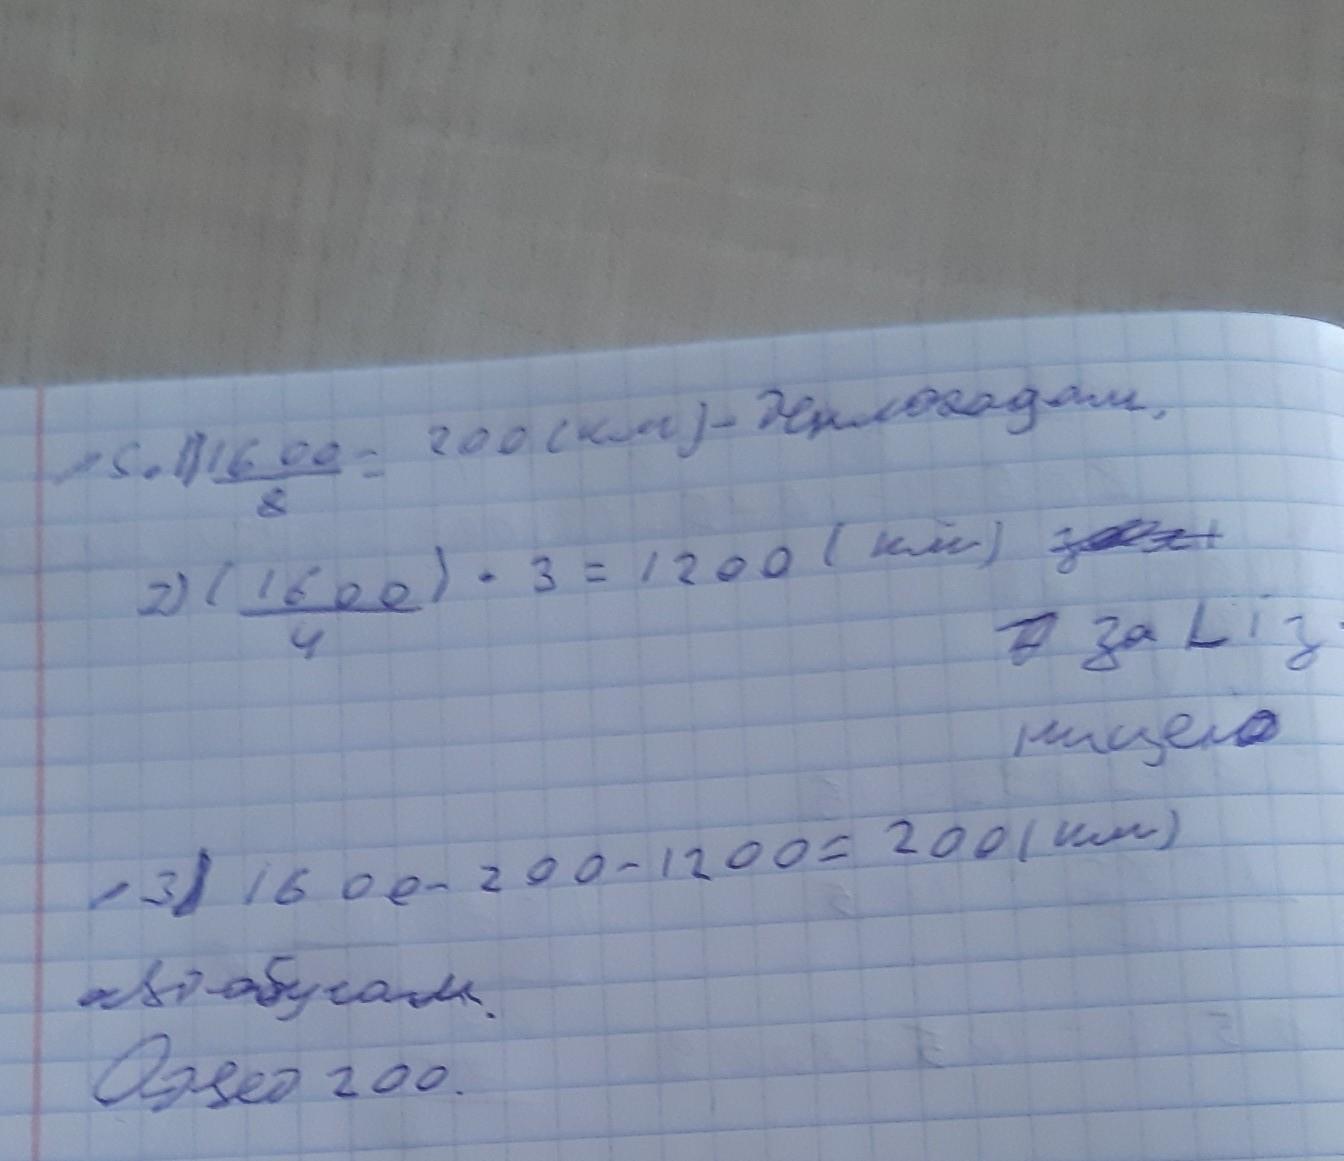 5. 1) 1600/8 = 200 (км) - теплоходам.
2) (1600/4) · 3 = 1200 (км)
за
3) 1600 - 200 - 1200 = 200 (км)
автобусам.
Ответ 200.